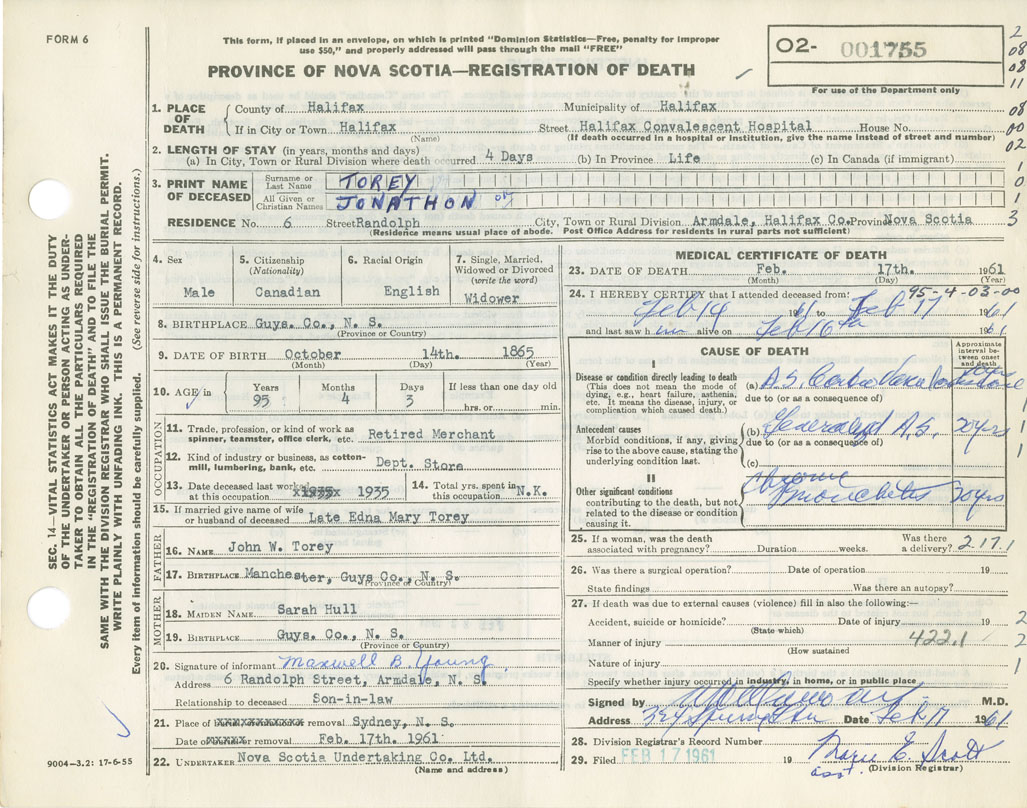 FORM 6
This form, if placed in an envelope, on which is printed "Dominion Statistics—Free, penalty for improper
use $50," and properly addressed will pass through the mail "FREE"
PROVINCE OF NOVA SCOTIA—REGISTRATION OF DEATH
O2- 001755
For use of the Department only
1. PLACE OF DEATH
County of Halifax Municipality of Halifax
If in City or Town Halifax Street Halifax Convalescent Hospital House No.
(Name) (If death occurred in a hospital or Institution, give the name Instead of street and number)
2. LENGTH OF STAY (in years, months and days)
(a) In City, Town or Rural Division where death occurred 4 Days (b) In Province Life (c) In Canada (if immigrant)
3. PRINT NAME OF DECEASED
Surname or Last Name TOREY
All Given or Christian Names JONATHON
RESIDENCE No. 6 Street Randolph City, Town or Rural Division Armdale, Halifax Co. Province Nova Scotia
(Residence means usual place of abode. Post Office Address for residents in rural parts not sufficient)
4. Sex
Male
5. Citizenship
(Nationality)
Canadian
6. Racial Origin
English
7. Single, Married, Widowed or Divorced
(write the word)
Widower
8. BIRTHPLACE Guys. Co., N. S.
(Province or Country)
9. DATE OF BIRTH October 14th. 1865
(Month) (Day) (Year)
10. AGE in
Years Months Days If less than one day old
95 4 3 hrs. or min.
OCCUPATION
11. Trade, profession, or kind of work as
spinner, teamster, office clerk, etc. Retired Merchant
12. Kind of industry or business, as cotton-
mill, lumbering, bank, etc. Dept. Store
13. Date deceased last worked
at this occupation 1935
14. Total yrs. spent in
this occupation N.K.
15. If married give name of wife
or husband of deceased Late Edna Mary Torey
FATHER
16. NAME John W. Torey
17. BIRTHPLACE Manchester, Guys Co., N. S.
(Province or Country)
MOTHER
18. MAIDEN NAME Sarah Hull
19. BIRTHPLACE Guys. Co., N. S.
(Province or Country)
20. Signature of informant Maxwell B. Young
Address 6 Randolph Street, Armdale, N. S.
Relationship to deceased Son-in-law
21. Place of removal Sydney, N. S.
Date of or removal Feb. 17th. 1961
22. UNDERTAKER Nova Scotia Undertaking Co. Ltd.
(Name and address)
9004—3.2: 17-6-55
SEC. 14—VITAL STATISTICS ACT MAKES IT THE DUTY
OF THE UNDERTAKER OR PERSON ACTING AS UNDER-
TAKER TO OBTAIN ALL THE PARTICULARS REQUIRED
IN THE "REGISTRATION OF DEATH" AND TO FILE THE
SAME WITH THE DIVISION REGISTRAR WHO SHALL ISSUE THE BURIAL PERMIT.
WRITE PLAINLY WITH UNFADING INK. THIS IS A PERMANENT RECORD.
Every item of information should be carefully supplied. (See reverse side for instructions.)
MEDICAL CERTIFICATE OF DEATH
23. DATE OF DEATH Feb. 17th. 1961
(Month) (Day) (Year)
95-4-03-00
24. I HEREBY CERTIFY that I attended deceased from:
Feb 14 1961 to Feb 17 1961
and last saw him alive on Feb 16th 1961
CAUSE OF DEATH
Approximate interval between onset and death
I
Disease or condition directly leading to death
(This does not mean the mode of
dying, e.g., heart failure, asthenia,
etc. It means the disease, injury, or
complication which caused death.)
(a) A.S.
due to (or as a consequence of)
Antecedent causes
Morbid conditions, if any, giving
rise to the above cause, stating the
underlying condition last.
(b) Generalized A.S. 30 yrs
due to (or as a consequence of)
(c)
II
Other significant conditions
contributing to the death, but not
related to the disease or condition
causing it.
chronic
Bronchitis 30 yrs
25. If a woman, was the death
associated with pregnancy? Duration weeks. Was there
a delivery? 2171
26. Was there a surgical operation? Date of operation 19
State findings Was there an autopsy?
27. If death was due to external causes (violence) fill in also the following:—
Accident, suicide or homicide? Date of injury 19
(State which)
Manner of injury 422.1
(How sustained
Nature of injury
Specify whether injury occurred in industry, in home, or in public place
Signed by M.D.
Address Date Feb 17 1961
28. Division Registrar's Record Number
29. Filed FEB 17 1961 19 Marie E. Scott
asst. (Division Registrar)
2
08
08
11
08
00
02
1
0
1
3
1
1
1
2
2
1